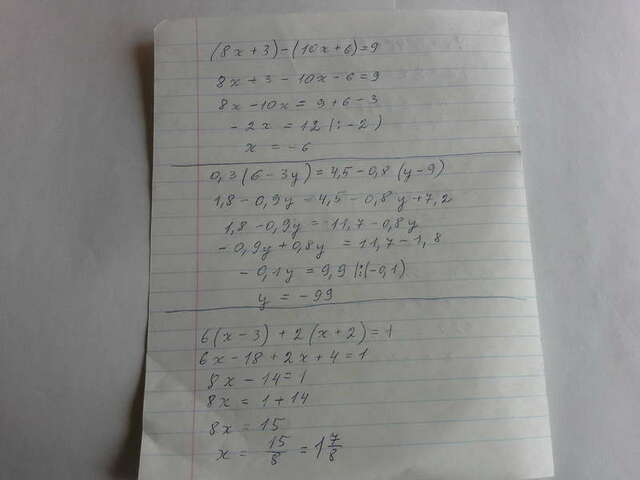 (8x+3)-(10x+6)=9
8x+3-10x-6=9
8x-10x=9+6-3
-2x=12|:(-2)
x=-6
0,3(6-3y)=4,5-0,8(y-9)
1,8-0,9y=4,5-0,8y+7,2
1,8-0,9y=11,7-0,8y
-0,9y+0,8y=11,7-1,8
-0,1y=9,9|:(-0,1)
y=-99
6(x-3)+2(x+2)=1
6x-18+2x+4=1
8x-14=1
8x=1+14
8x=15
x=15/8=1 7/8